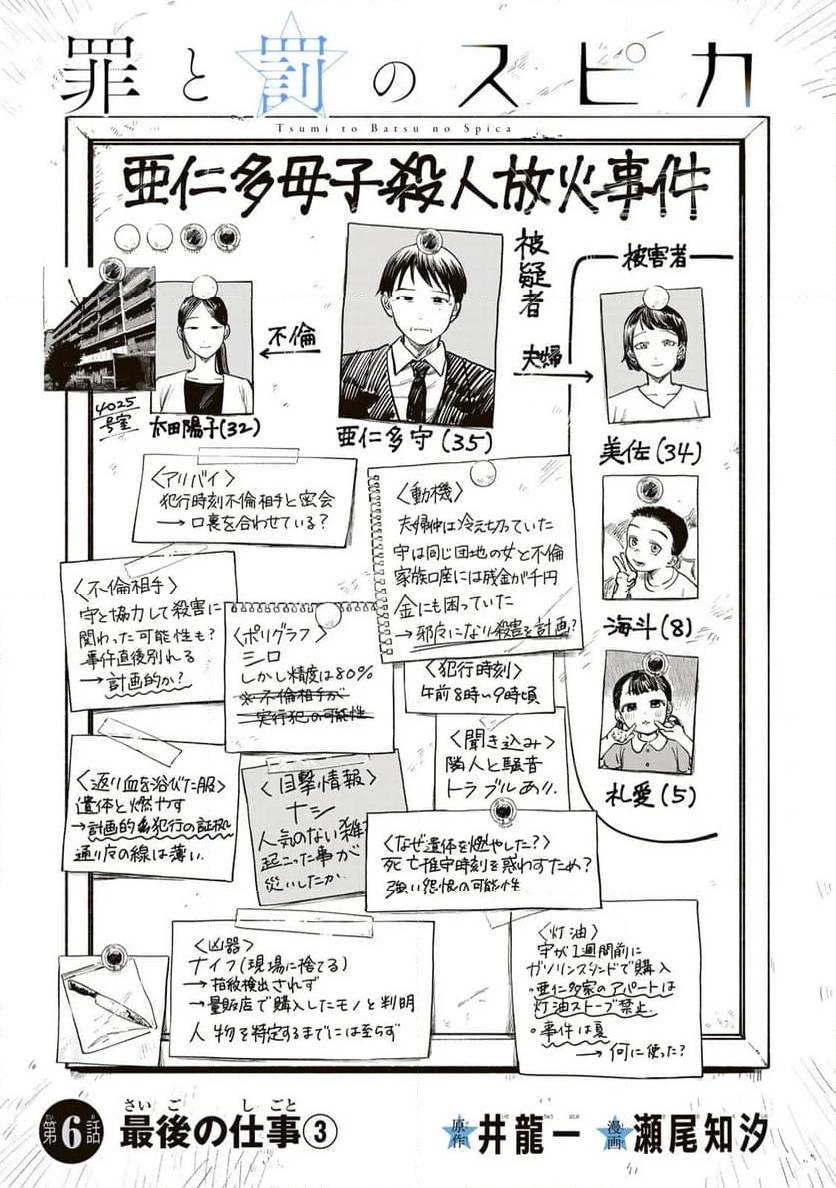 罪と罰のスピカ
Tsumi to Batsu no Spica
亜仁多母子殺人放火事件
被疑者
被害者
不倫
夫婦
4025
号室
太田陽子(32)
亜仁多守(35)
美佐(34)
海斗(8)
札愛(5)
〈アリバイ〉
犯行時刻不倫相手と密会
→口裏を合わせている?
〈動機〉
夫婦仲は冷え切っていた
守は同じ団地の女と不倫
家族口座には残金が千円
金にも困っていた
→邪魔になり殺害を計画?
〈不倫相手〉
守と協力して殺害に
関わった可能性も?
事件直後別れる
→計画的か?
〈ポリグラフ〉
シロ
しかし精度は80%
※不倫相手が
実行犯の可能性
〈犯行時刻〉
午前8時〜9時頃
〈聞き込み〉
隣人と騒音
トラブルあり.
〈返り血を浴びた服〉
遺体と燃やす
→計画的な犯行の証拠
通り魔の線は薄い.
〈目撃情報〉
ナシ
人気のない雑
起こった事が
災いしたか.
〈なぜ遺体を燃やした?〉
死亡推定時刻を惑わすため?
強い怨恨の可能性
〈凶器〉
ナイフ(現場に捨てる)
→指紋検出されず
→量販店で購入したモノと判明
人物を特定するまでには至らず
〈灯油〉
守が1週間前に
ガソリンスタンドで購入
・亜仁多家のアパートは
灯油ストーブ禁止.
・事件は夏
→何に使った?
第6話
さいご しごと
最後の仕事③
原作 井龍一
漫画 瀬尾知汐